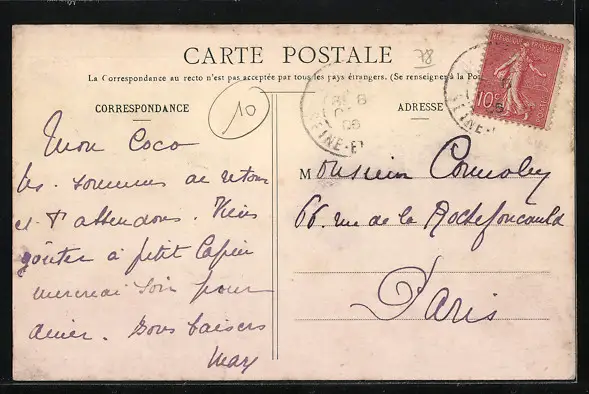 CARTE POSTALE
78
La Correspondance au recto n'est pas acceptée par tous les pays étrangers. (Se renseigner à la Po
CORRESPONDANCE
10
ADRESSE
REPUBLIQUE FRANÇAISE
10c
SEINE-E
Mon Coco
sommes de retour
et t'attendons. Viens
goûter à petit lapin
mercredi soir pour
dîner. Bons baisers
May
Monsieur Connoley
66. rue de la Rochefoucauld
Paris